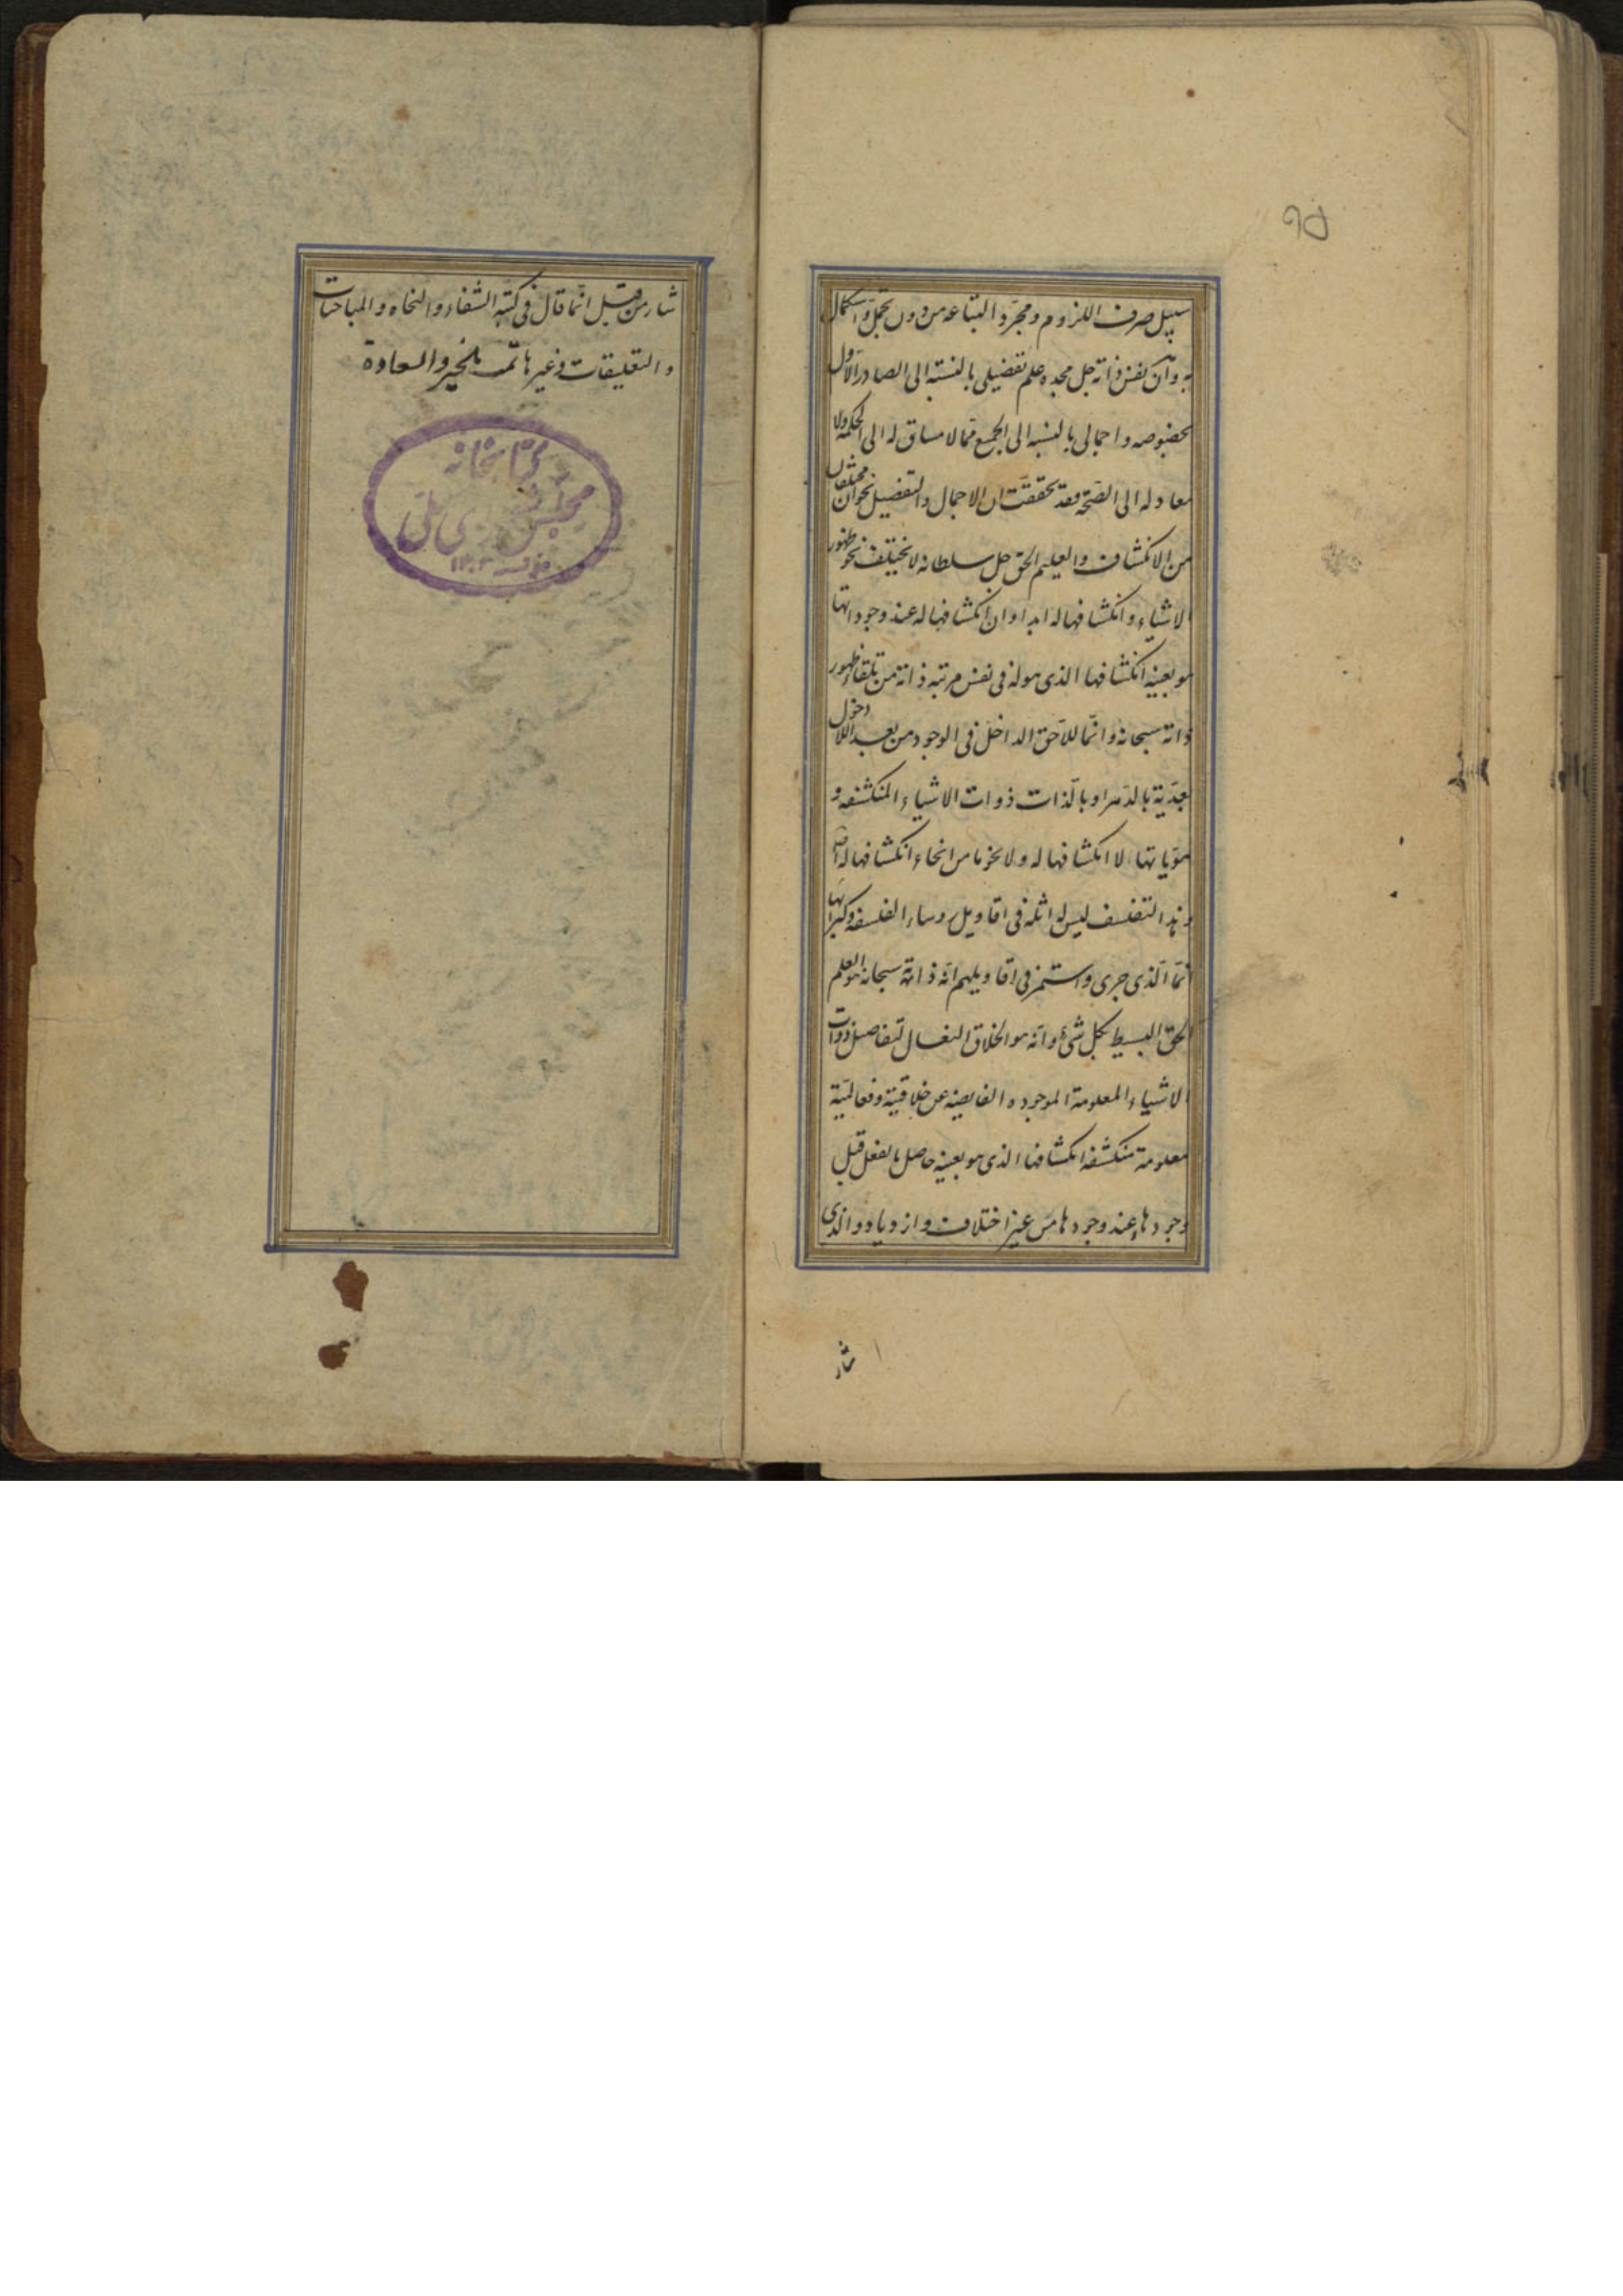 سبیل صرف اللزوم ومجرد التباعه من دون تجمل واستکمال
به وان نفس ذاته جل مجده علم تفضیلی بالنسبة الی الصادر الاول
بخصوصه واجمالی بالنسبه الی الجمیع مما لا مساق له الی الحکمه ولا
معاد له الی الصحة فقد تحققت ان الاجمال والتفضیل نحوان مختلفان
من الانکشاف والعلیم الحق جل سلطانه لا یختلف نحو ظهور
الاشیاء وانکشافها له ابدا وان انکشافها له عند وجوداتها
هو بعینه انکشافها الذی هو له فی نفس مرتبه ذاته من تلقاء ظهور
ذاته سبحانه وانما للاحق الداخل فی الوجود من بعد اللا دخول
بعدیة بالدهر او بالذات ذوات الاشیاء المنکشفه و
هویاتها لا انکشافها له ولا نحو ما من انحاء انکشافها له
وهذا التفلسف لیس له اثله فی اقاویل روساء الفلسفه وکبرائها
انما الذی جری واستمر فی اقاویلهم انه ذاته سبحانه هو العلم
الحق البسیط بکل شئ وانه هو الخلاق الفعال لتفاصیل ذوات
الاشیاء المعلومة الموجوده الفایضه عن خلاقیته وفعالیته
معلومة منکشفه انکشافها الذی هو بعینه حاصل بالفعل قبل
وجودها وعند وجودها من غیر اختلاف وازدیاد والذی
ثار
ثار من قبل انما قال فی کتبه الشفاء والنجاه والمباحثات
والتعلیقات وغیرها تمت بالخیر والسعادة
کتابخانه
مجلس شورای ملی
۹۵